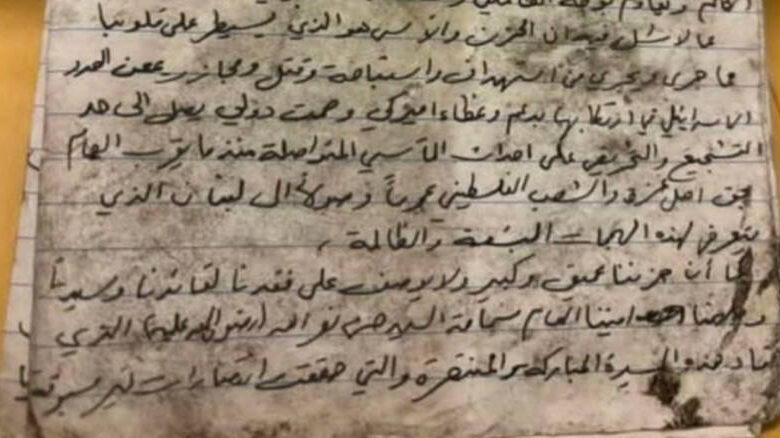 مما لا شك فيه ان الحزن والأسى هو الذي يسيطر على قلوبنا
مما جرى ويجري من استهداف واستباحة وقتل ومجازر يمعن العدو
الاسرائيلي في ارتكابها بدعم وغطاء اميركي وصمت دولي يصل الى حد
التشجيع والتحريض على احداث المآسي المتواصلة منذ ما يقرب العام
بحق اهل غزة والشعب الفلسطيني عموماً وصولاً الى لبنان الذي
يتعرض لهذه الهجمات البشعة والظالمة ،
كما أن حزننا عميق وكبير ولا يوصف على فقدنا لقائدنا وسيدنا
اميننا العام سماحة السيد حسن نصر الله (رضوان الله عليه) الذي
قاد هذه المسيرة المباركة والمنتصرة والتي حققت انتصارات غير مسبوقة